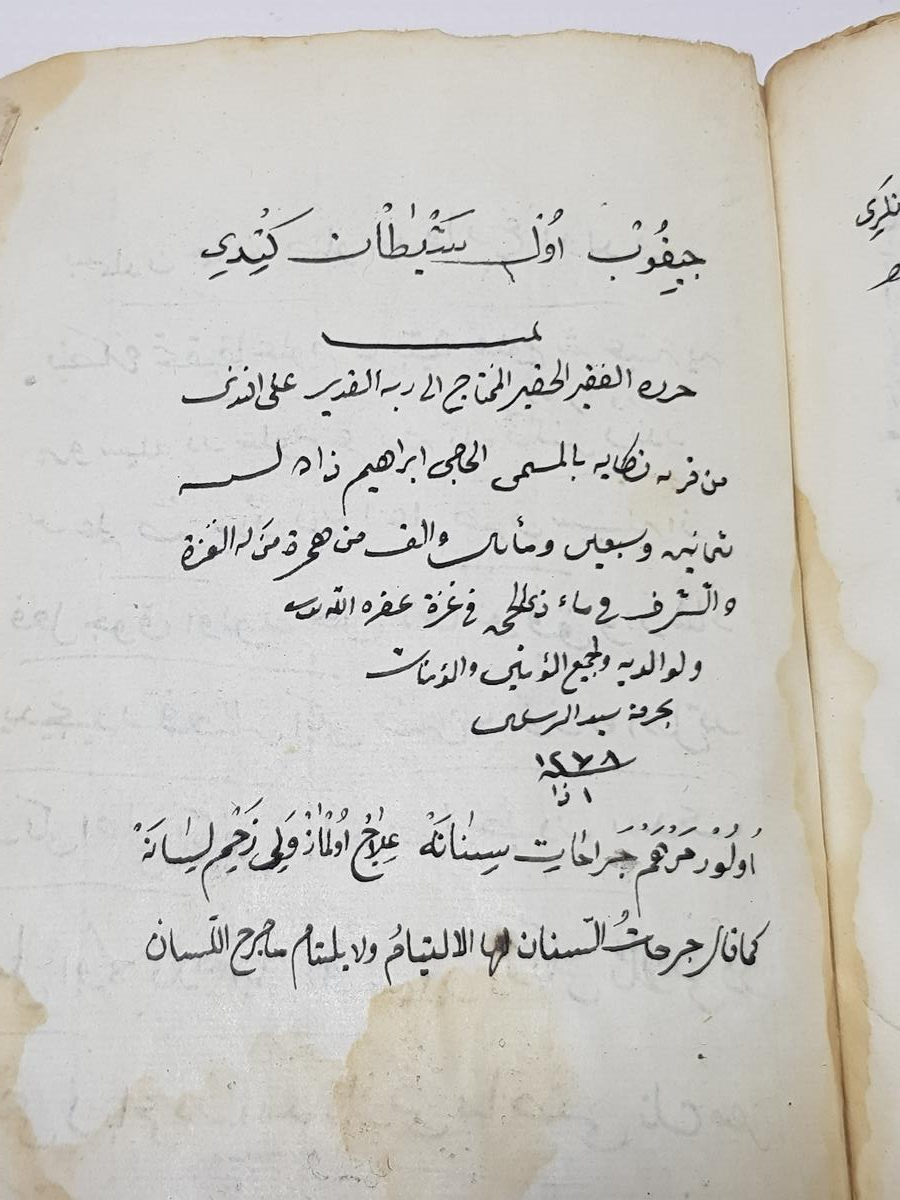 جيقوب اول شيطان كتدي
تمت
حرره الفقير الحقير المحتاج الى ربه القدير على افندى
من قريه بالمسمى الحاجى ابراهيم زاده لسنه
ثمانين وسبعين ومأتين والف من هجرة من له العزة
والشرف فى ماه ذى الحجه فى غرة غفره الله
ولوالديه ولجميع المؤمنين والمؤمنات
بحرمة سيد المرسلين
١٢٧٨
١ ذا
اُولُورْ مَرْهَمْ جَراحَاتِ سِنَانَهْ عِلاجْ اُولْمَازْ وَلِى زَخْمِ لِسَانَهْ
كما قال جرحاتُ السّنان لها الالتيامُ ولا يلتام ما جرح اللّسان
نكرى